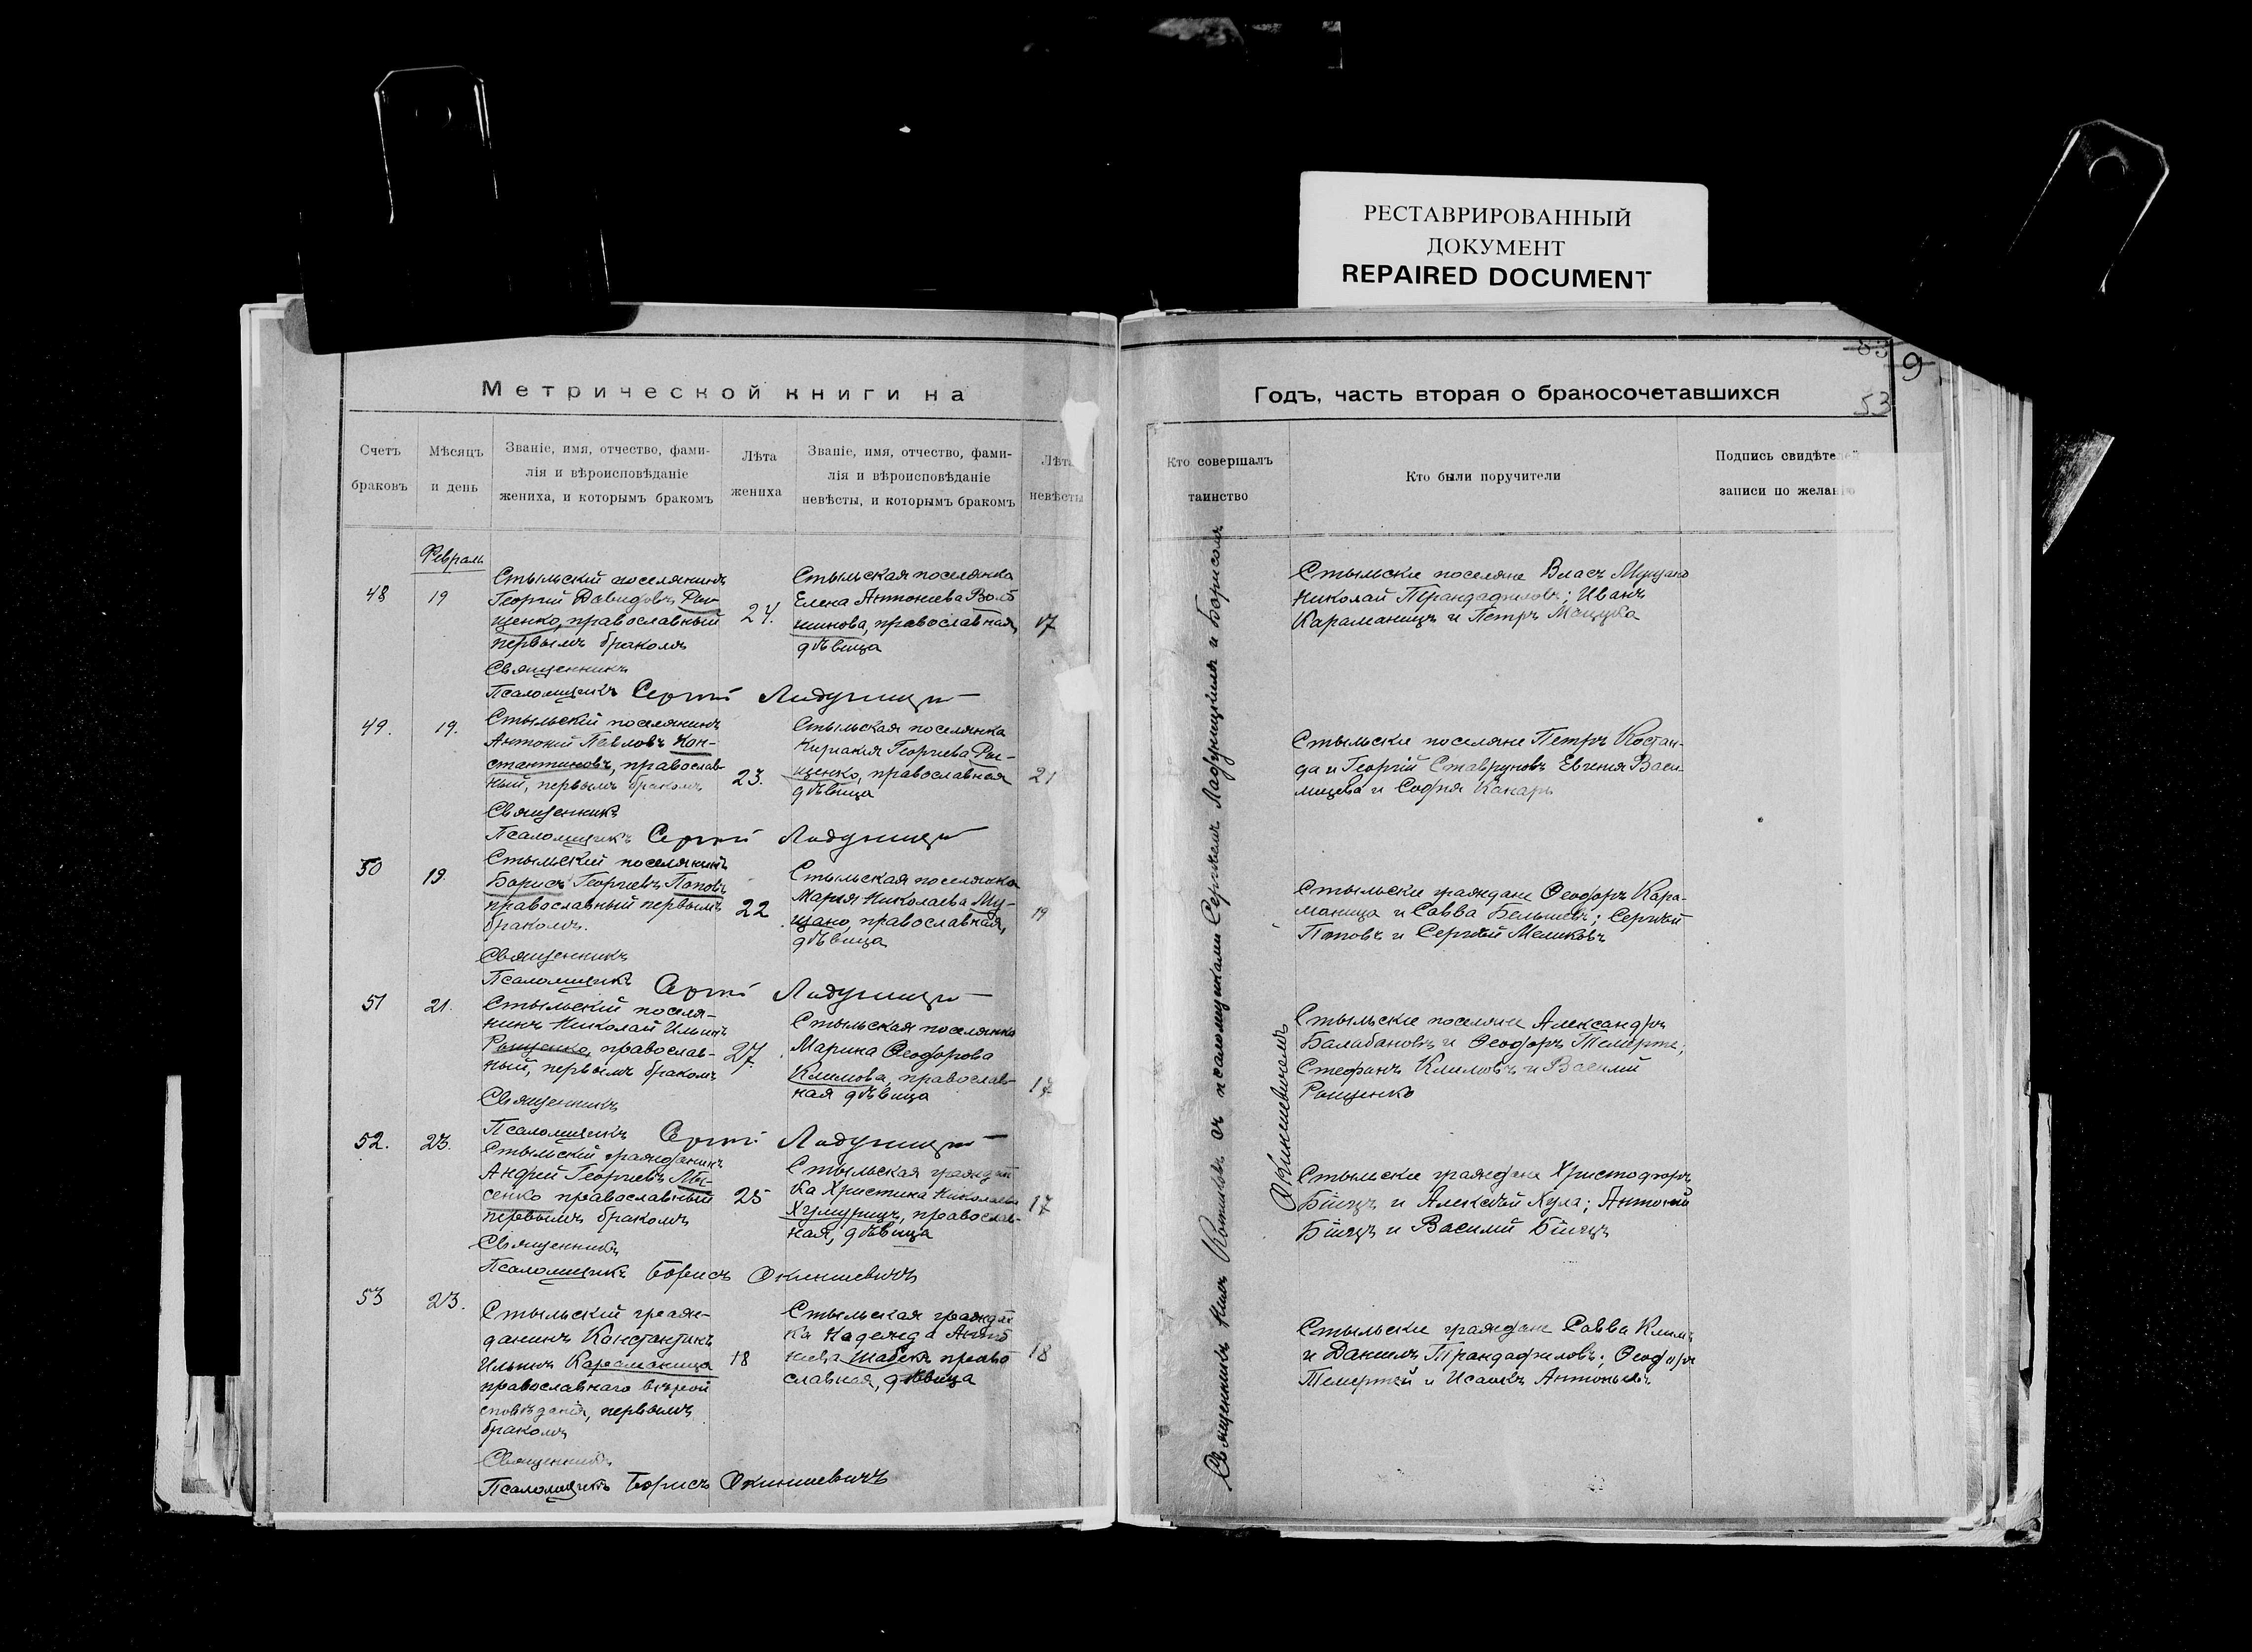 РЕСТАВРИРОВАННЫЙ
ДОКУМЕНТ
REPAIRED DOCUMENT
Метрической книги на
Счетъ
браковъ
Мѣсяцъ
и день
Званіе, имя, отчество, фами-
лія и вѣроисповѣданіе
жениха, и которымъ бракомъ
Лѣта
жениха
Званіе, имя, отчество, фами-
лія и вѣроисповѣданіе
невѣсты, и которымъ бракомъ
Лѣта
невѣсты
Февраль
48
19
Стыльскій поселянинъ
Георгій Давидовъ
щенко, православный
первымъ бракомъ
24.
Стыльская поселянка
Елена Антоніева
шинова, православная,
дѣвица
17
Священникъ
Псаломщикъ Сергій Ладуницкій
49.
19.
Стыльскій поселянинъ
Антоній Павловъ Кон-
стантиновъ, православ-
ный, первымъ бракомъ
23.
Стыльская поселянка
Киріакія Георгіева
щенко, православная
дѣвица
21
Священникъ
Псаломщикъ Сергій Ладуницкій
50
19.
Стыльскій поселянинъ
Борисъ Георгіевъ Поповъ
православный первымъ
бракомъ.
22
Стыльская поселянка
Марія Николаева Му-
щано, православная,
дѣвица
19
Священникъ
Псаломщикъ Сергій Ладуницкій
51
21.
Стыльскій поселя-
нинъ Николай Ильинъ
православ-
ный, первымъ бракомъ
27.
Стыльская поселянка
Марина Ѳеодорова
Климова, православ-
ная дѣвица
17
Священникъ
Псаломщикъ Сергій Ладуницкій
52.
23.
Стыльскій гражданинъ
Андрей Георгіевъ
сенко православный
первымъ бракомъ
25
Стыльская граждан
ка Христина Николаева
православ-
ная, дѣвица
17
Священникъ
Псаломщикъ Борисъ Окиншевичъ
53
23.
Стыльскій граж-
данинъ Константинъ
Ильинъ Караманица
православнаго вѣрои
сповѣданія, первымъ
бракомъ
18
Стыльская граждан
ка Надежда Анто
ніева православ
славная, дѣвица
18
Священникъ
Псаломщикъ Борисъ Окиншевичъ
83
9
53
Годъ, часть вторая о бракосочетавшихся
Кто совершалъ
таинство
Кто были поручители
Подпись свидѣтелей
записи по желанію
Священникъ съ псаломщиками Сергѣемъ Ладуницкимъ и Борисомъ
Окиншевичемъ
Стыльскіе поселяне Власъ Мущано
Николай Трандафиловъ; Иванъ
Караманицъ и Петръ Мацука
Стыльскіе поселяне Петръ Костан-
да и Георгій Ставруновъ Евгенія Васи-
и Софія Канаръ
Стыльскіе граждане Ѳеодоръ Кара-
маница и Савва Сергѣй
Поповъ и Сергѣй Меликовъ
Стыльскіе поселяне Александръ
Балабановъ и Ѳеодоръ Темерте;
Стефанъ Климовъ и Василій
Стыльскіе граждане Христофоръ
и Алексѣй Хула; Антоній
и Василій
Стыльскіе граждане Савва Климъ
и Даніилъ Трандафиловъ; Ѳеодоръ
Темертей и Исаакъ